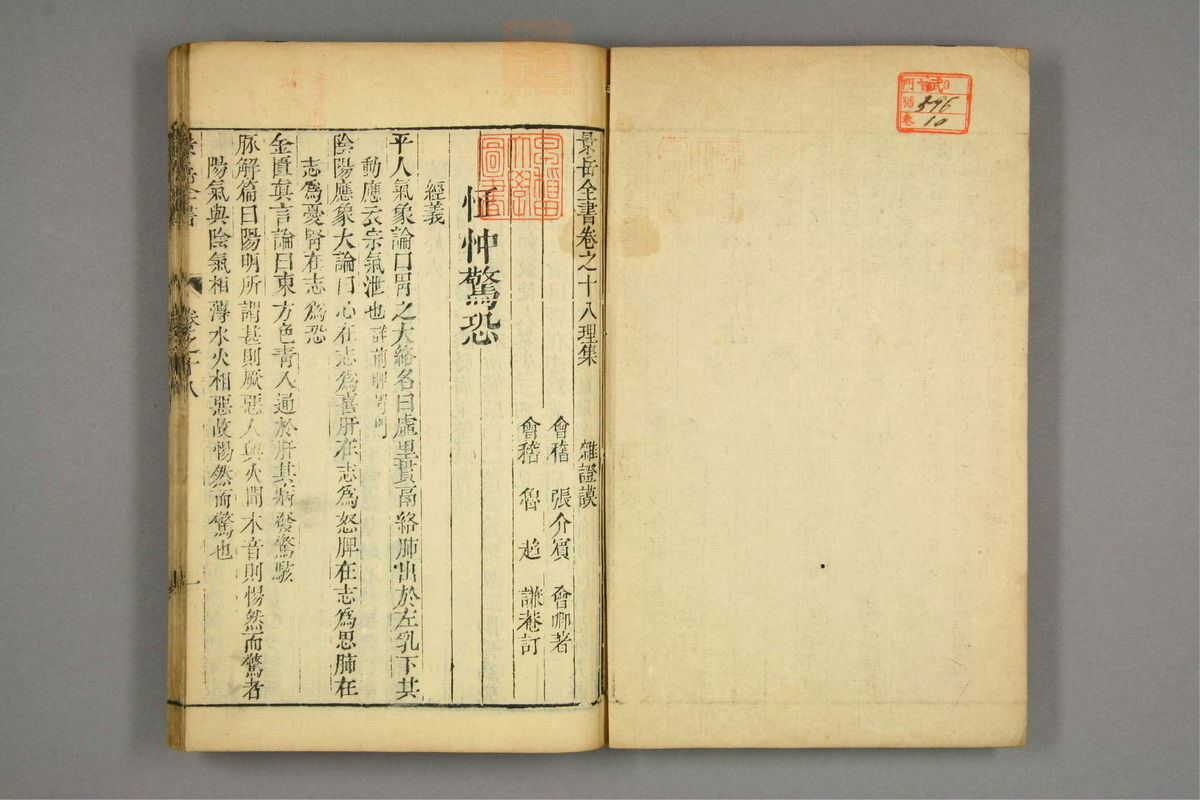 景岳全書卷之十八理集 雜證謨
會稽 張介賓 會卿著
會稽 魯超 謙菴訂
怔忡驚恐
經義
平人氣象論曰胃之大絡名曰虛里貫鬲絡肺出於左乳下其
動應衣宗氣泄也詳前脾胃門
陰陽應象大論曰心在志爲喜肝在志爲怒脾在志爲思肺在
志爲憂腎在志爲恐
金匱真言論曰東方色青入通於肝其病發驚駭
脈解篇曰陽明所謂甚則厥惡人與火聞木音則惕然而驚者
陽氣與陰氣相薄水火相惡故惕然而驚也
景岳全書
卷之十八
一
早稲田
大學
圖書
門
號 596
卷 10